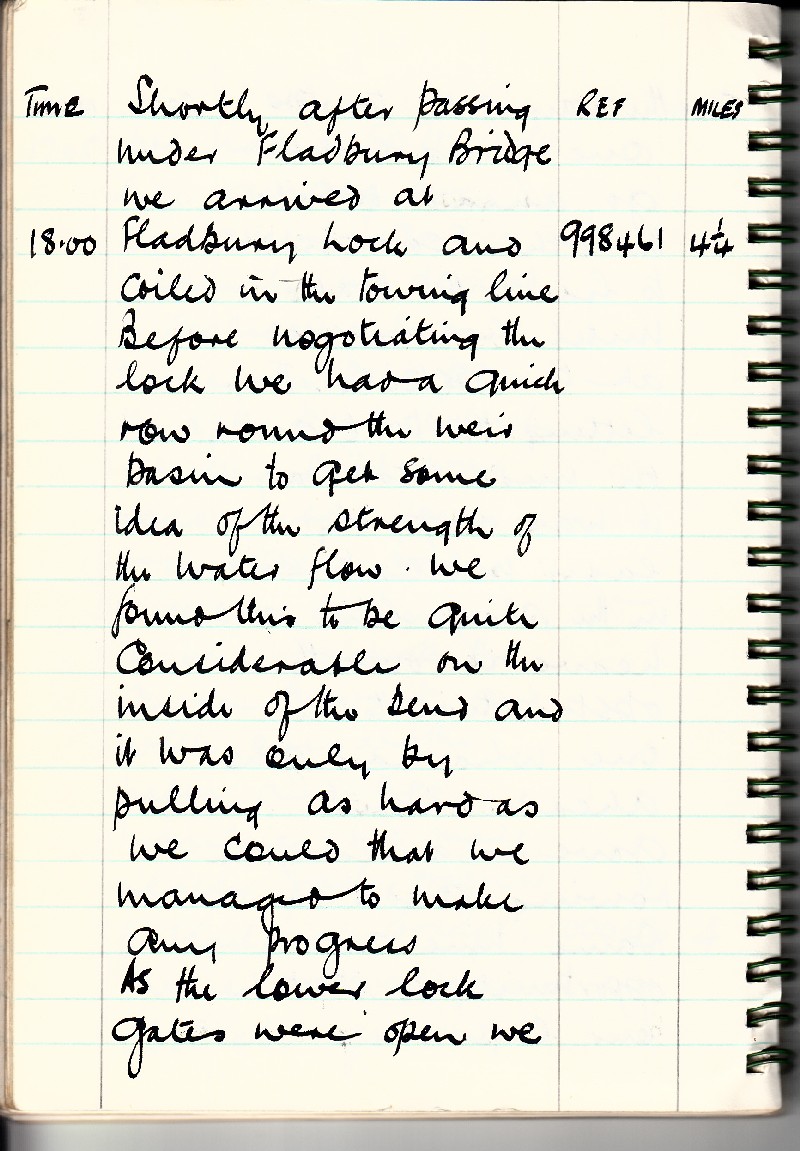 Time Shortly after passing REF MILES
under Fladbury Bridge
we arrived at
18.00 Fladbury Lock and 998461 4¼
coiled in the towing line
Before nogotiating the
lock we had a quick
row round the weir
basin to get some
idea of the strength of
the water flow. We
found this to be quite
considerable on the
inside of the bend and
it was only by
pulling as hard as
we could that we
managed to make
any progress
As the lower lock
gates were open we